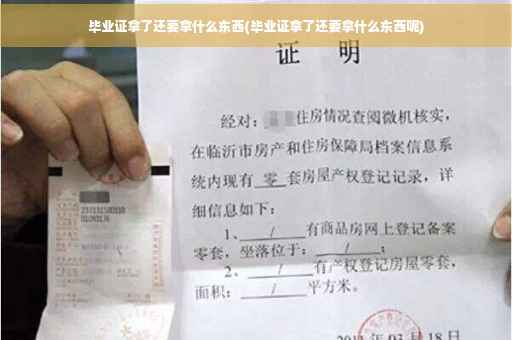 毕业证拿了还要拿什么东西(毕业证拿了还要拿什么东西呢)
证 明
经对: 住房情况查阅微机核实,
在临沂市房产和住房保障局档案信息系
统内现有 零 套房屋产权登记记录, 详
细信息如下:
1、 / 有商品房网上登记备案
零套, 坐落位于: / ;
2、 / 有产权登记房屋零套,
面积: / 平方米。
月 18 日